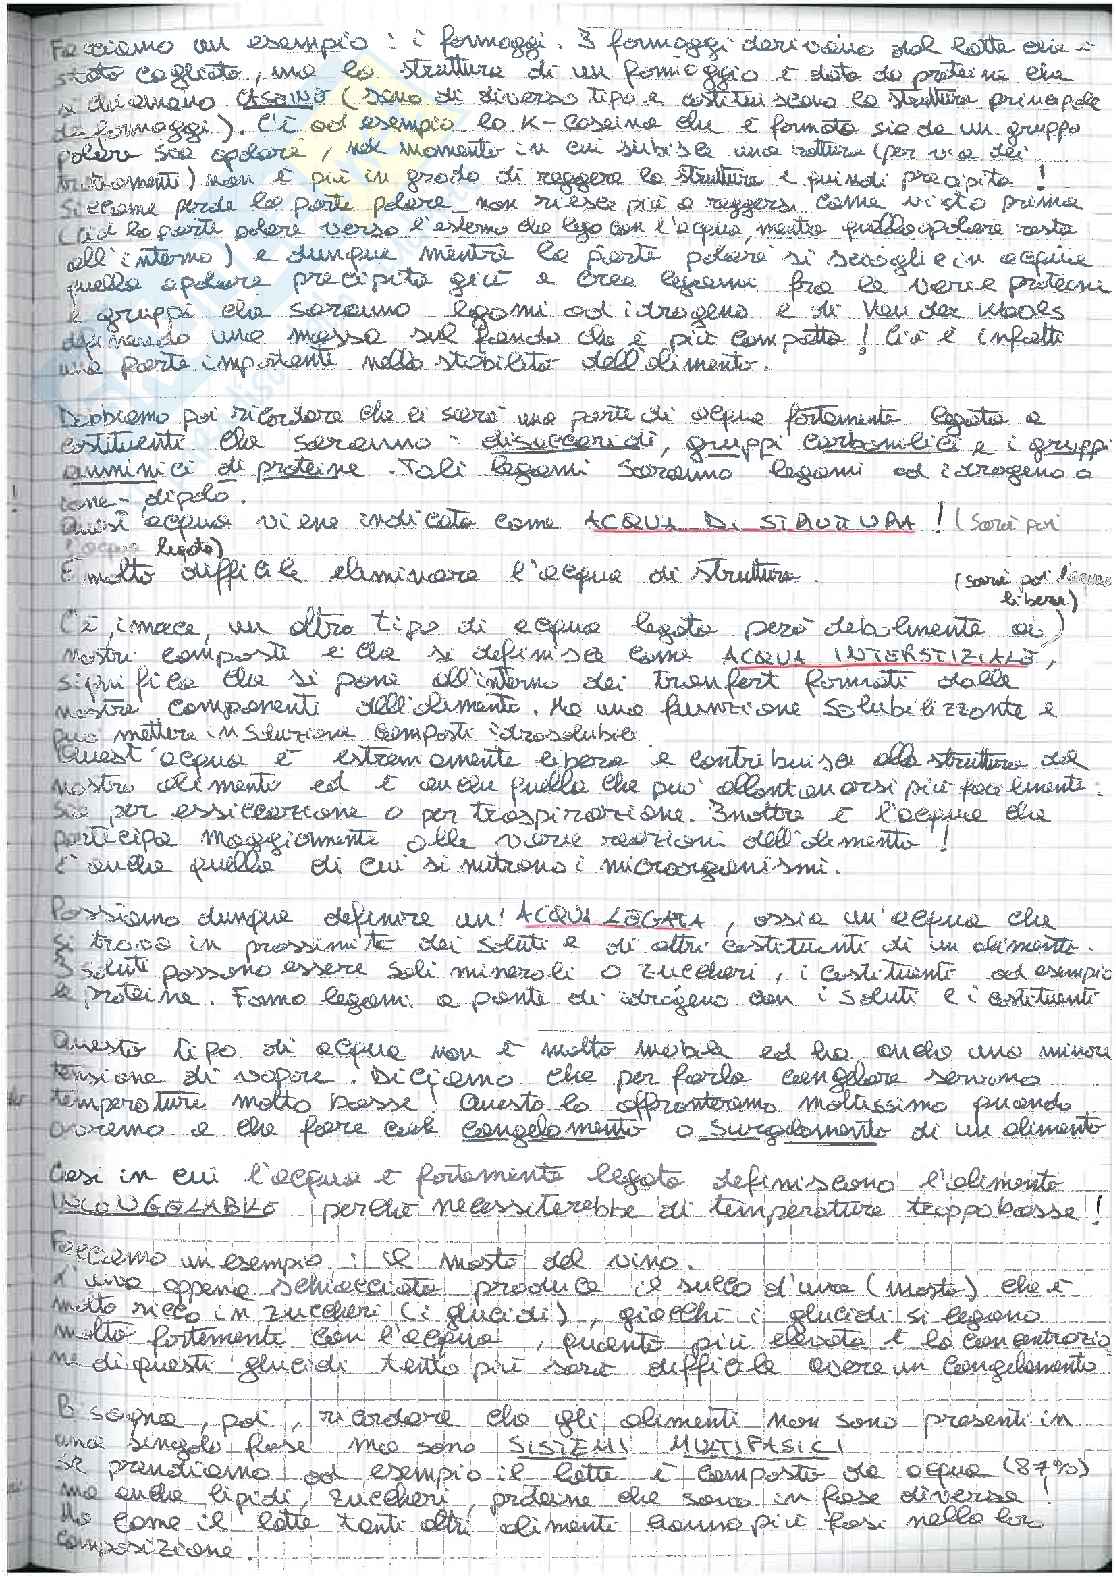 Facciamo un esempio: i formaggi. I formaggi derivano dal latte che è
stato cagliato, ma la struttura di un formaggio è data da proteine che
si chiamano CASEINE (sono di diverso tipo e costituiscono la struttura principale
dei formaggi). C'è ad esempio la K-caseina che è formata sia da un gruppo
polare sia apolare, nel momento in cui subisce una rottura (per via dei
trattamenti) non è più in grado di reggere la struttura e quindi precipita!
Siccome perde la parte polare non riesce più a reggersi come visto prima
(cioè la parte polare verso l'esterno che lega con l'acqua, mentre quella apolare resta
all'interno) e dunque mentre la parte polare si scioglie in acqua
quella apolare precipita giù e crea legami fra le varie proteine
e gruppi che saranno legami ad idrogeno e di Van der Waals
formando una massa sul fondo che è più compatta! Ciò è infatti
una parte importante nella stabilità dell'alimento.
Dobbiamo poi ricordare che ci sarà una parte di acqua fortemente legata a
costituenti che saranno: disaccaridi, gruppi carbonilici e i gruppi
amminici di proteine. Tali legami saranno legami ad idrogeno o
ione-dipolo.
Quest'acqua viene indicata come ACQUA DI STRUTTURA! (sarà poi
l'acqua legata)
È molto difficile eliminare l'acqua di struttura.
(sarà poi l'acqua
libera)
C'è, invece, un altro tipo di acqua legata però debolmente ai
nostri composti e che si definisce come ACQUA INTERSTIZIALE,
significa che si pone all'interno dei formati dalle
nostre componenti dell'alimento. Ha una funzione solubilizzante e
può mettere in soluzione composti idrosolubili.
Quest'acqua è estremamente libera e contribuisce alla struttura del
nostro alimento ed è anche quella che può allontanarsi più facilmente:
sia per essiccazione o per traspirazione. Inoltre è l'acqua che
partecipa maggiormente alle varie reazioni dell'alimento!
È anche quella di cui si nutrono i microrganismi.
Possiamo dunque definire un'ACQUA LEGATA, ossia un'acqua che
si trova in prossimità dei soluti e di altri costituenti di un alimento.
I soluti possono essere sali minerali o zuccheri, i costituenti ad esempio
le proteine. Fanno legami a ponte di idrogeno con i soluti e i costituenti
Questo tipo di acqua non è molto mobile ed ha anche una minore
tensione di vapore. Diciamo che per farla congelare servono
temperature molto basse! Questo lo affronteremo moltissimo quando
avremo a che fare col congelamento o surgelamento di un alimento
Casi in cui l'acqua è fortemente legata definiscono l'alimento
INCONGELABILE perché necessiterebbe di temperature troppo basse!
Facciamo un esempio: il mosto del vino.
L'uva appena schiacciata produce il succo d'uva (mosto) che è
molto ricco in zuccheri (i glucidi), giacchè i glucidi si legano
molto fortemente con l'acqua, quanto più elevata è la concentrazio
ne di questi glucidi tanto più sarà difficile avere un congelamento
Bisogna, poi, ricordare che gli alimenti non sono presenti in
una singola fase ma sono SISTEMI MULTIFASICI
Se prendiamo ad esempio il latte è composto da acqua (87%)
ma anche lipidi, zuccheri, proteine che sono in fase diversa!
Ma come il latte tanti altri alimenti hanno più fasi nella loro
composizione.